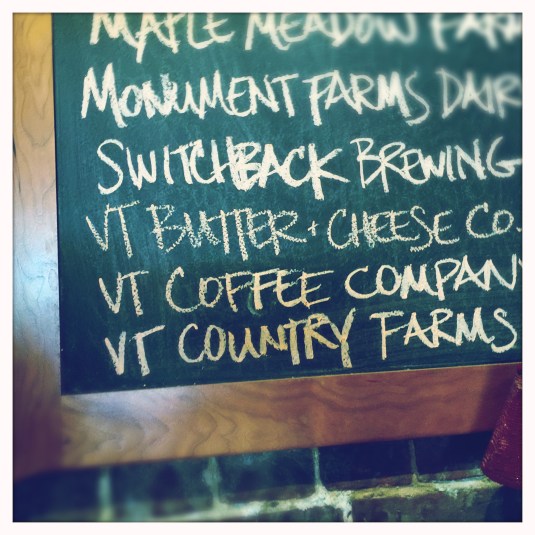 MAPLE MEADOW FARM
MONUMENT FARMS DAIR
SWITCHBACK BREWING
VT BUTTER + CHEESE CO.
VT COFFEE COMPANY
VT COUNTRY FARMS